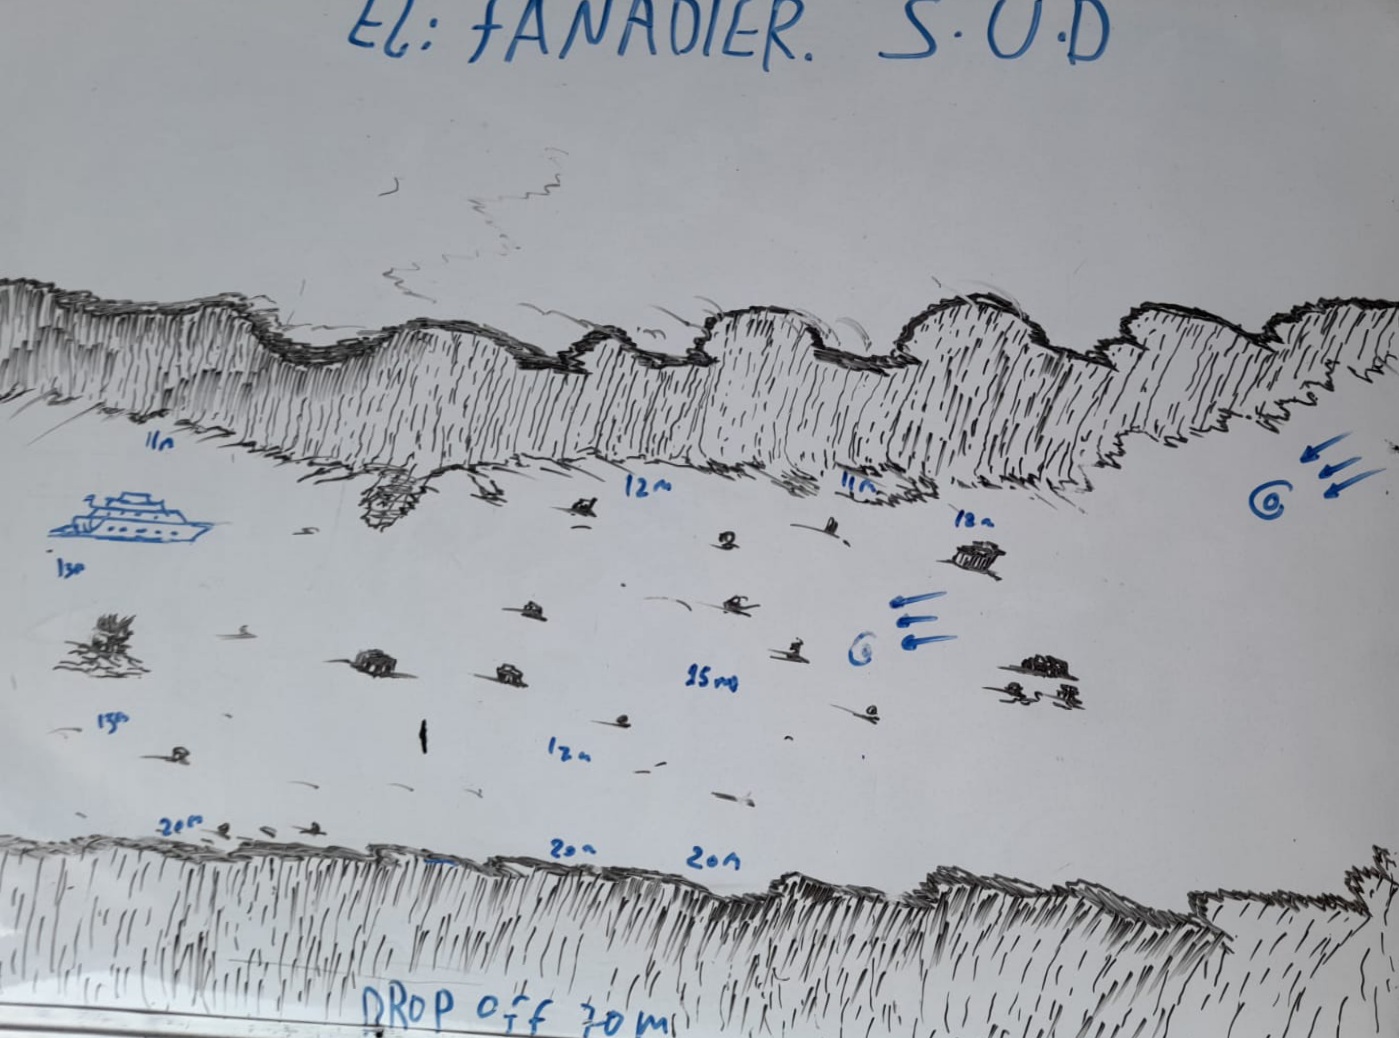 EL: fANADIER. S.U.D
11m
12m
11m
18m
13m
15m
15m
12m
20m
20m
20m
DROP Off 70m